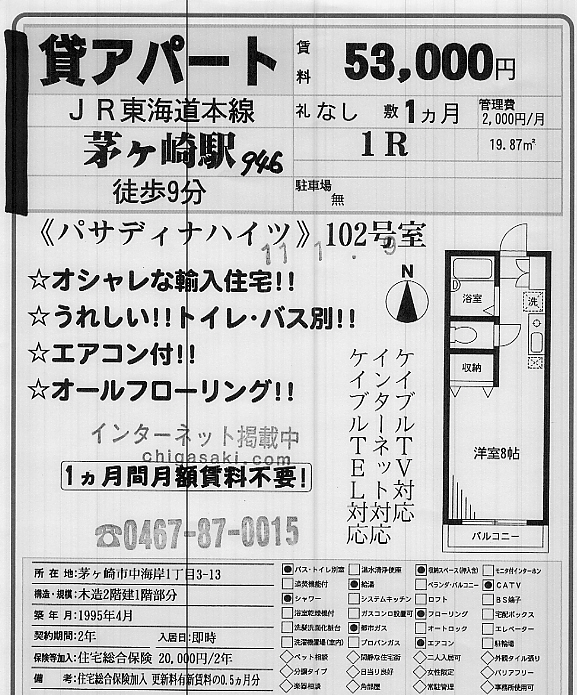 貸アパート
賃料 53,000円
JR東海道本線
礼 なし 敷 1ヵ月 管理費 2,000円/月
茅ヶ崎駅 946
1R 19.87㎡
徒歩9分
駐車場 無
《パサディナハイツ》102号室
☆オシャレな輸入住宅!!
☆うれしい!!トイレ・バス別!!
☆エアコン付!!
☆オールフローリング!!
ケイブルTV対応
インターネット対応
ケイブルTEL対応
N
浴室
洗
収納
洋室8帖
バルコニー
インターネット掲載中
chigasaki.com
1ヵ月間月額賃料不要!
☎0467-87-0015
所在地:茅ヶ崎市中海岸1丁目3-13
構造・規模:木造2階建1階部分
築年月:1995年4月
契約期間:2年 入居日:即時
保険等加入:住宅総合保険 20,000円/2年
備考:住宅総合保険加入 更新料有新賃料の0.5ヵ月分
バス・トイレ別室 温水清浄便座 収納スペース(押入含) モニタ付インターホン
追焚機能付 給湯 ベランダ・バルコニー CATV
シャワー システムキッチン ロフト BS端子
浴室乾燥機付 ガスコンロ設置可 フローリング 宅配ボックス
洗髪洗面化粧台 都市ガス オートロック エレベーター
洗濯機置場(室内) プロパンガス エアコン 駐輪場
ペット相談 閑静な住宅街 二人入居可 外観タイル張り
分譲タイプ 日当り良好 女性限定 バリアフリー
楽器相談 角部屋 常駐管理 事務所使用可